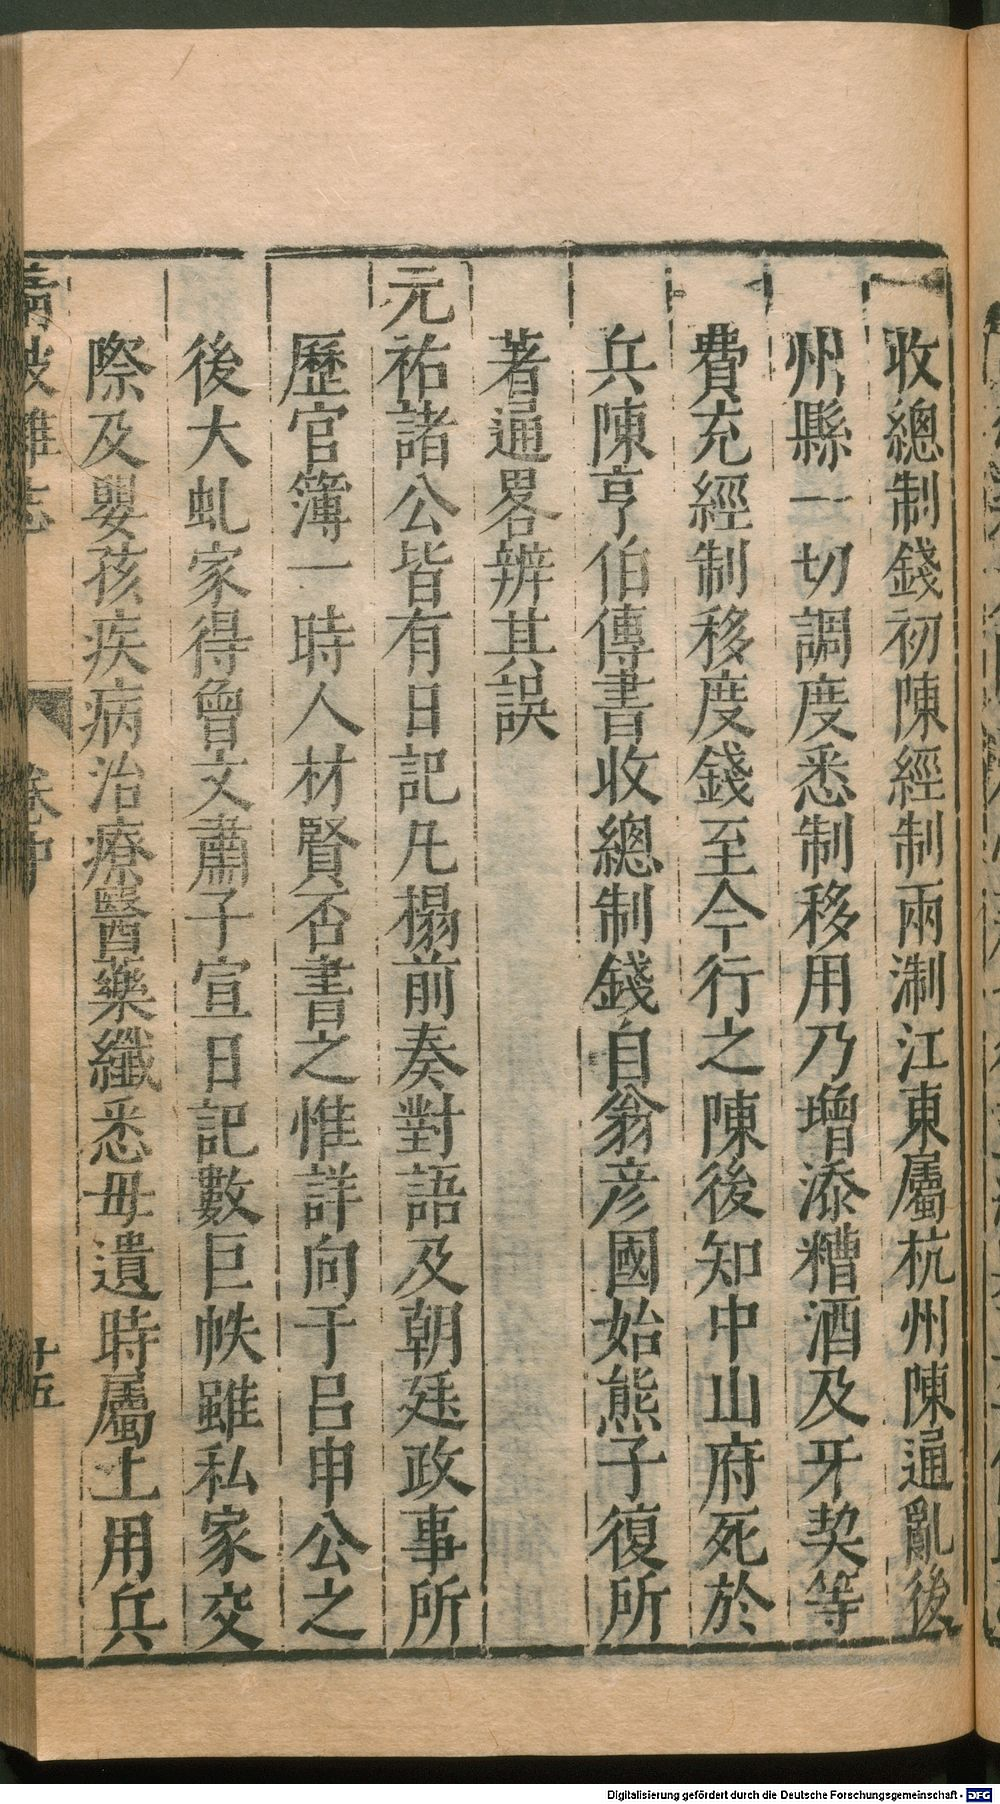 收總制錢初陳經制兩淛江東屬杭州陳通亂後
州縣一切調度悉制移用乃增添糟酒及牙契等
費充經制移度錢至今行之陳後知中山府死於
兵陳亨伯傳書收總制錢自翁彥國始熊子復所
著通畧辨其誤
元祐諸公皆有日記凡榻前奏對語及朝廷政事所
歷官簿一時人材賢否書之惟詳向于呂申公之
後大虬家得曾文肅子宣日記數巨帙雖私家交
際及嬰孩疾病治療醫藥纖悉毋遺時屬上用兵
清波雜志
卷中
十五
Digitalisierung gefördert durch die Deutsche Forschungsgemeinschaft - DFG